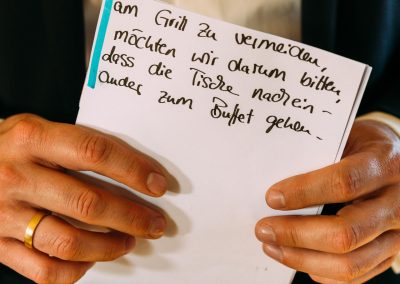 am Grill zu vermeiden,
möchten wir darum bitten,
dass die Tische nachein-
ander zum Buffet gehen.